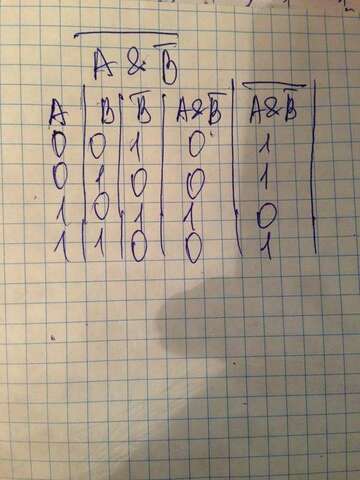 A & B̅
A B B̅ A&B̅ A&B̅
0 0 1 0 1
0 1 0 0 1
1 0 1 1 0
1 1 0 0 1